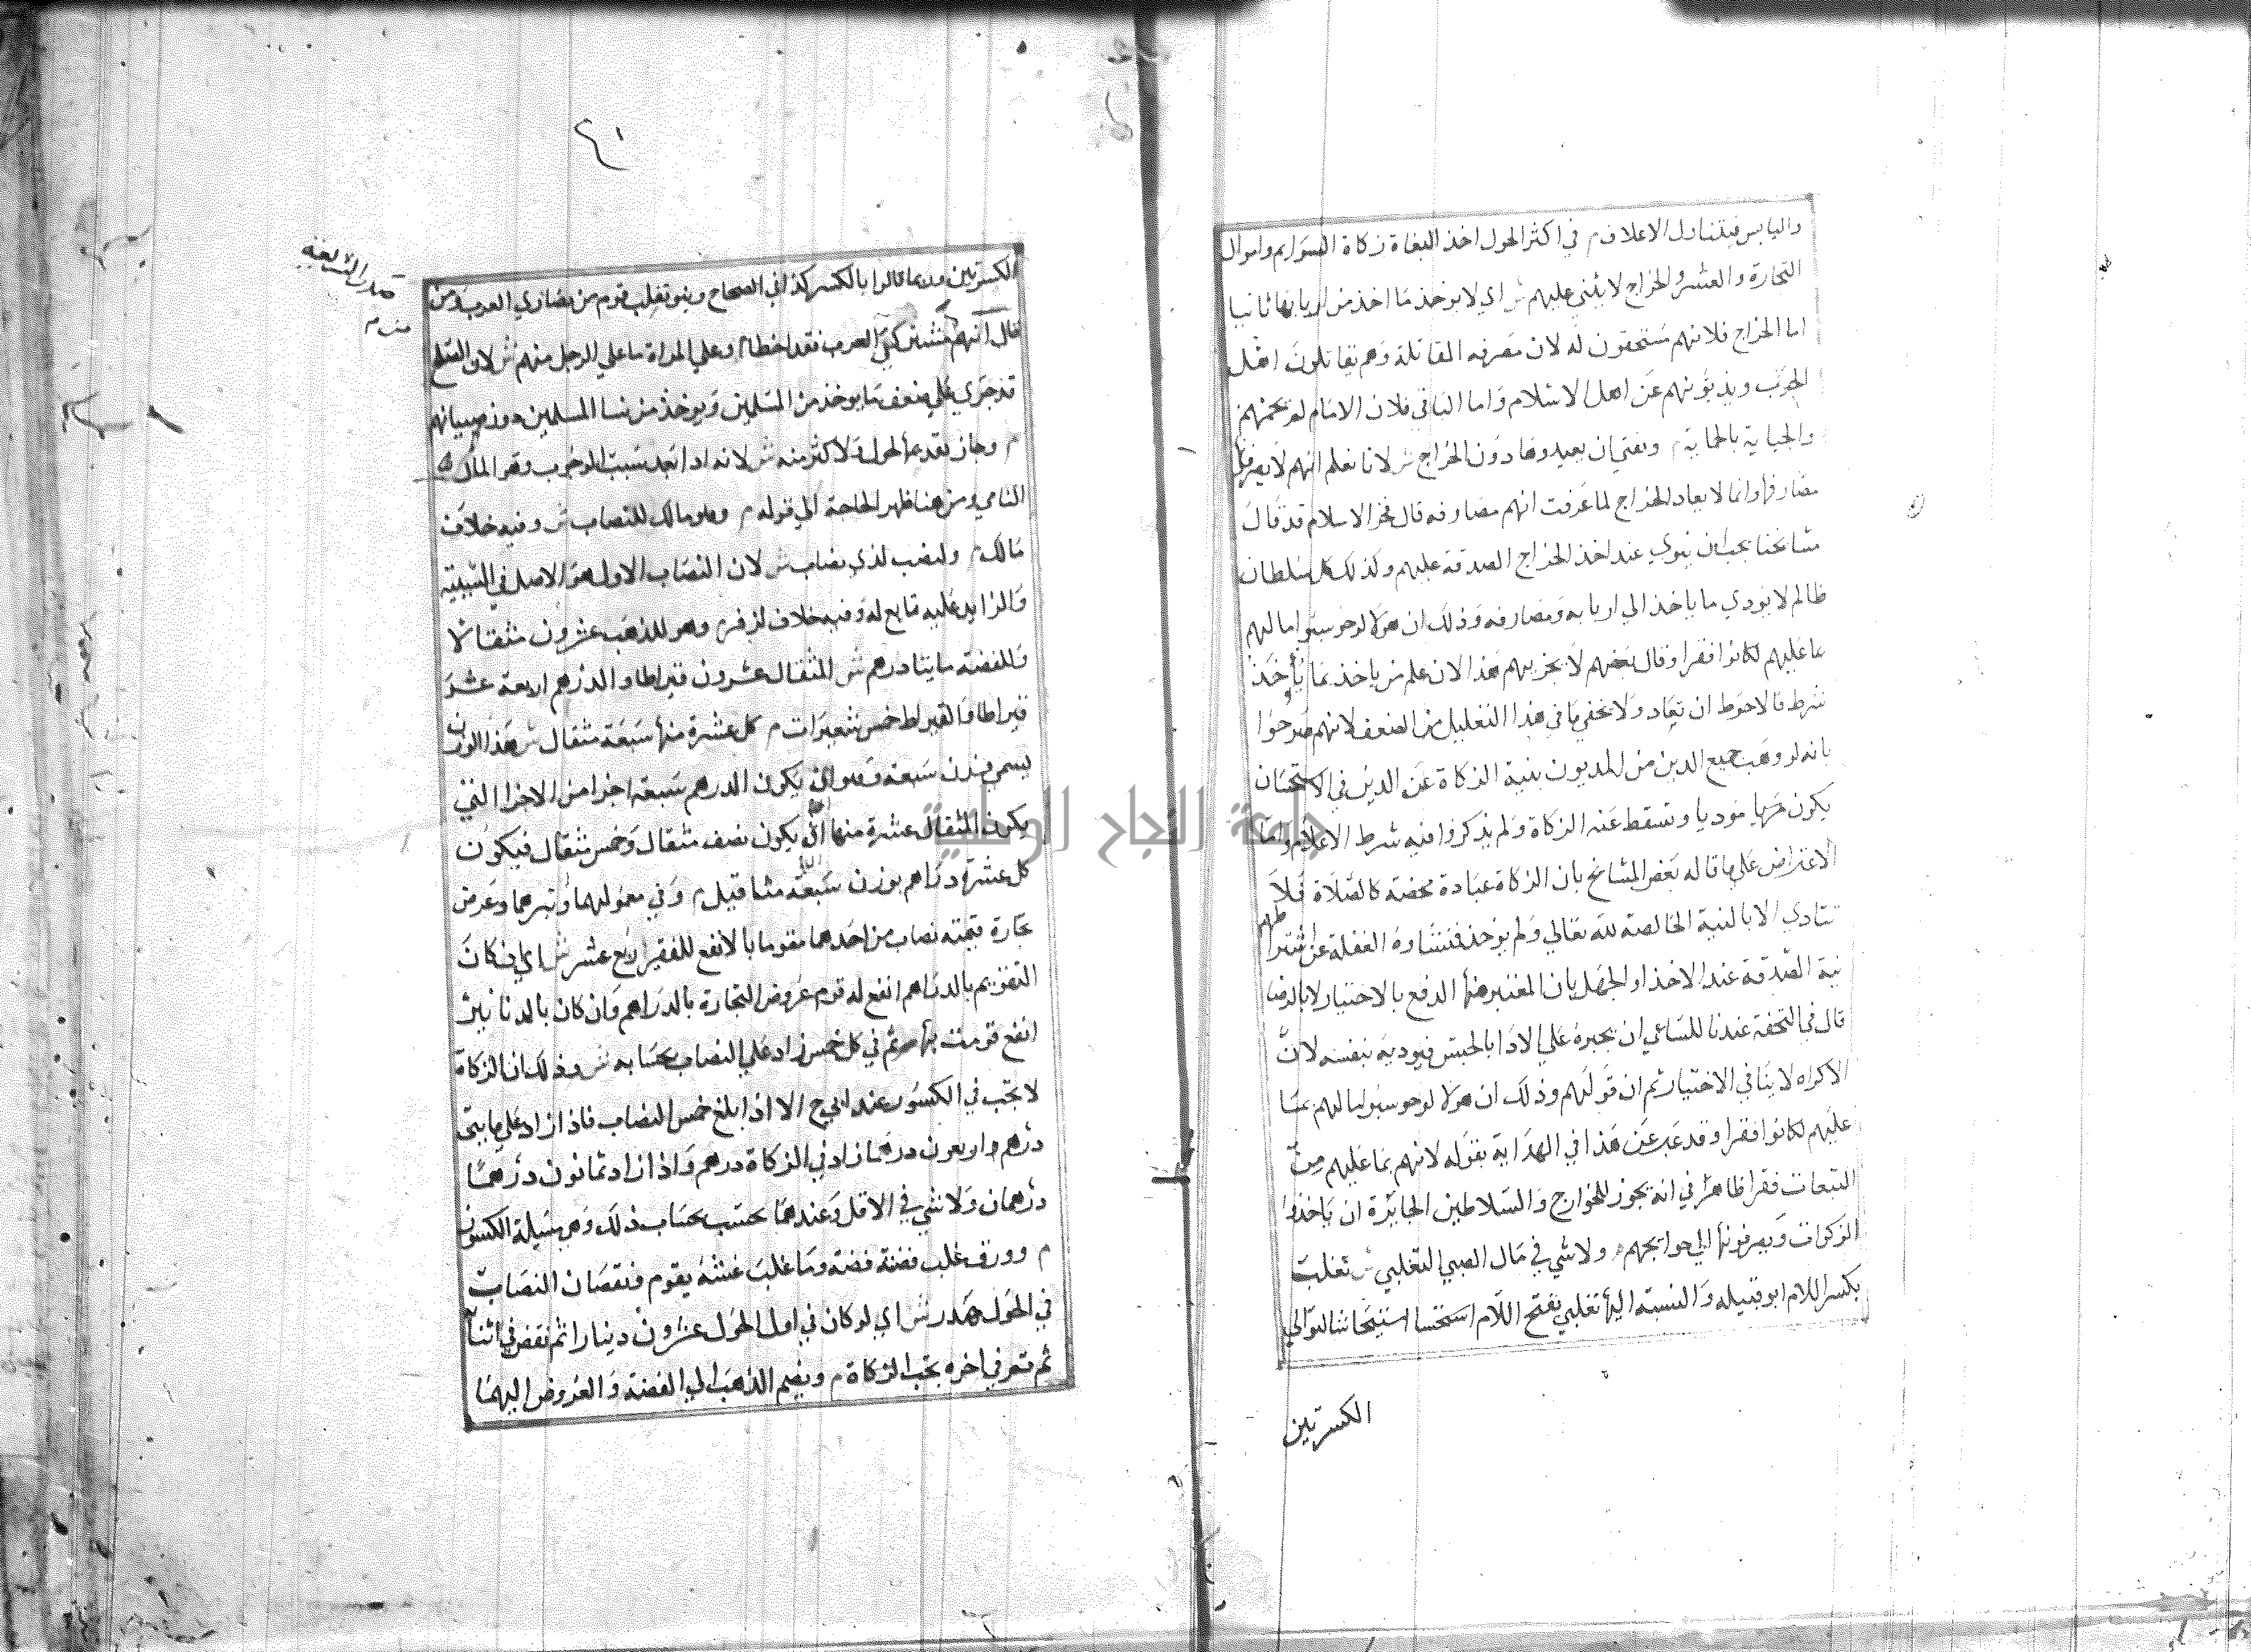 واليابس فيتناول الاعلاف م في اكثر الحول اخذ البغاة زكاة السوايم واموال
التجارة والعشر والخراج لا يثني عليهم ش اي لا يوخذ ما اخذ من اربابها ثانيا
اما الخراج فلانهم مستحقون له لان مصرفه المقاتلة وهم يقاتلون اهل
الحرب ويذبونهم عن اهل الاسلام واما الباقي فلان الامام لم يحمهم
والجباية بالحماية م ويفتي ان يعيدوها دون الخراج ش لانا نعلم انهم لا يصرفونها
مصارفها وانما لا يعاد الخراج لما عرفت انهم مصارفه قال فخر الاسلام قد قال
مشايخنا يجب ان ينوي عند اخذ الخراج الصدقة عليهم وكذلك كل سلطان
ظالم لا يودي ما ياخذ الي اربابه ومصارفه وذلك ان هولا لو حوسبوا مالهم
بما عليهم لكانوا فقرا وقال بعضهم لا يجزيهم هذا لان علم من ياخذ بما ياخذ
شرط فالاحوط ان تعاد ولا يخفي ما في هذا التعليل من الضعف لانهم صرحوا
بانه لو وهب جميع الدين من المديون بنية الزكاة عن الدين في الاستحسان
يكون مودیا وتسقط عنه الزكاة ولم يذكروا فيه شرط الاعلام واما
الاعتراض علي ما قاله بعض المشايخ بان الزكاة عبادة محضة كالصلاة فلا
تتادي الا بالنية الخالصة لله تعالي ولم يوخذ فمنشاوه الغفلة عن اشتراطهم
نية الصدقة عند الاخذ او الجهل بان المعتبر هنا الدفع بالاختيار لا بالرضا
قال في التحفة عندنا للساعي ان يجبره علي الادا بالحبس فيوديه بنفسه لان
الاكراه لا ينافي الاختيار ثم ان قولهم وذلك ان هولا لو حوسبوا مالهم بما
عليهم لكانوا فقرا وقد عبر عن هذا في الهداية بقوله لانهم بما عليهم من
التبعات فقرا ظاهر في انه يجوز للخوارج والسلاطين الجائرة ان ياخذوا
الزكوات ويصرفونها الي حوايجهم م ولا شي في مال الصبي التغلبي ش تغلب
بكسر اللام ابو قبيله والنسبة اليها تغلبي بفتح اللام استيحاشا لتوالي
الكسرتين
٤١
صدر الشريعة
منه
الكسرتين وربما قالوا بالكسر كذا في الصحاح وبنو تغلب قوم من نصاري العرب ومن
قال انهم مشركي العرب فقد اخطا م وعلي المراة ما علي الرجل منهم ش لان الصلح
قد جري علي ضعف ما يوخذ من المسلمين ويوخذ من نسا المسلمين دون صبيانهم
م وجاز تقديمها لحول ولاكثر منه ش لانه ادا بعد سبب الوجوب وهو المال
النامي ومن هنا ظهر الحاجة الي قوله م وهو مالك للنصاب ش وفيه خلاف
مالك م ولنصب لذي نصاب ش لان النصاب الاول هو الاصل في السببية
والزايد عليه تابع له وفيه خلاف لزفر م وهو للذهب عشرون مثقالا
وللفضة مايتا درهم ش المثقال عشرون قيراطا والدرهم اربعة عشر
قيراطا والقيراط خمس شعيرات م كل عشرة منها سبعة مثقال ش هذا الوزن
يسمي وزن سبعة وهو ان يكون الدرهم سبعة اجزا من الاجزا التي
يكون المثقال عشرة منها اي يكون نصف مثقال وخمس مثقال فيكون
كل عشرة دراهم بوزن سبعة مثاقيل م وفي معمولهما وتبرهما وعرض
تجارة قيمته نصاب من احدهما مقوما بالانفع للفقير ربع عشر ش اي ان كان
التقويم بالدراهم انفع له قوم عروض التجارة بالدراهم وان كان بالدنانير
انفع قومت بها م ثم في كل خمس زاد علي النصاب بحسابه ش وذلك ان الزكاة
لا تجب في الكسور عند ابي ح الا اذا بلغ خمس النصاب فاذا زاد علي مايتي
درهم اربعون درهما زاد في الزكاة درهم واذا زاد ثمانون درهما
درهمان ولا شي في الاقل وعندهما يحسب بحساب ذلك وهي مسيلة الكسور
م وورق غلب فضته فضة وما غلب غشه يقوم ونقصان النصاب
في الحول هدر ش اي لو كان في اول الحول عشرون دينارا ثم نقص في اثنا
ثم تم في اخره تجب الزكاة م ويضم الذهب الي الفضة والعروض اليهما
جامعة النجاح الوطنية